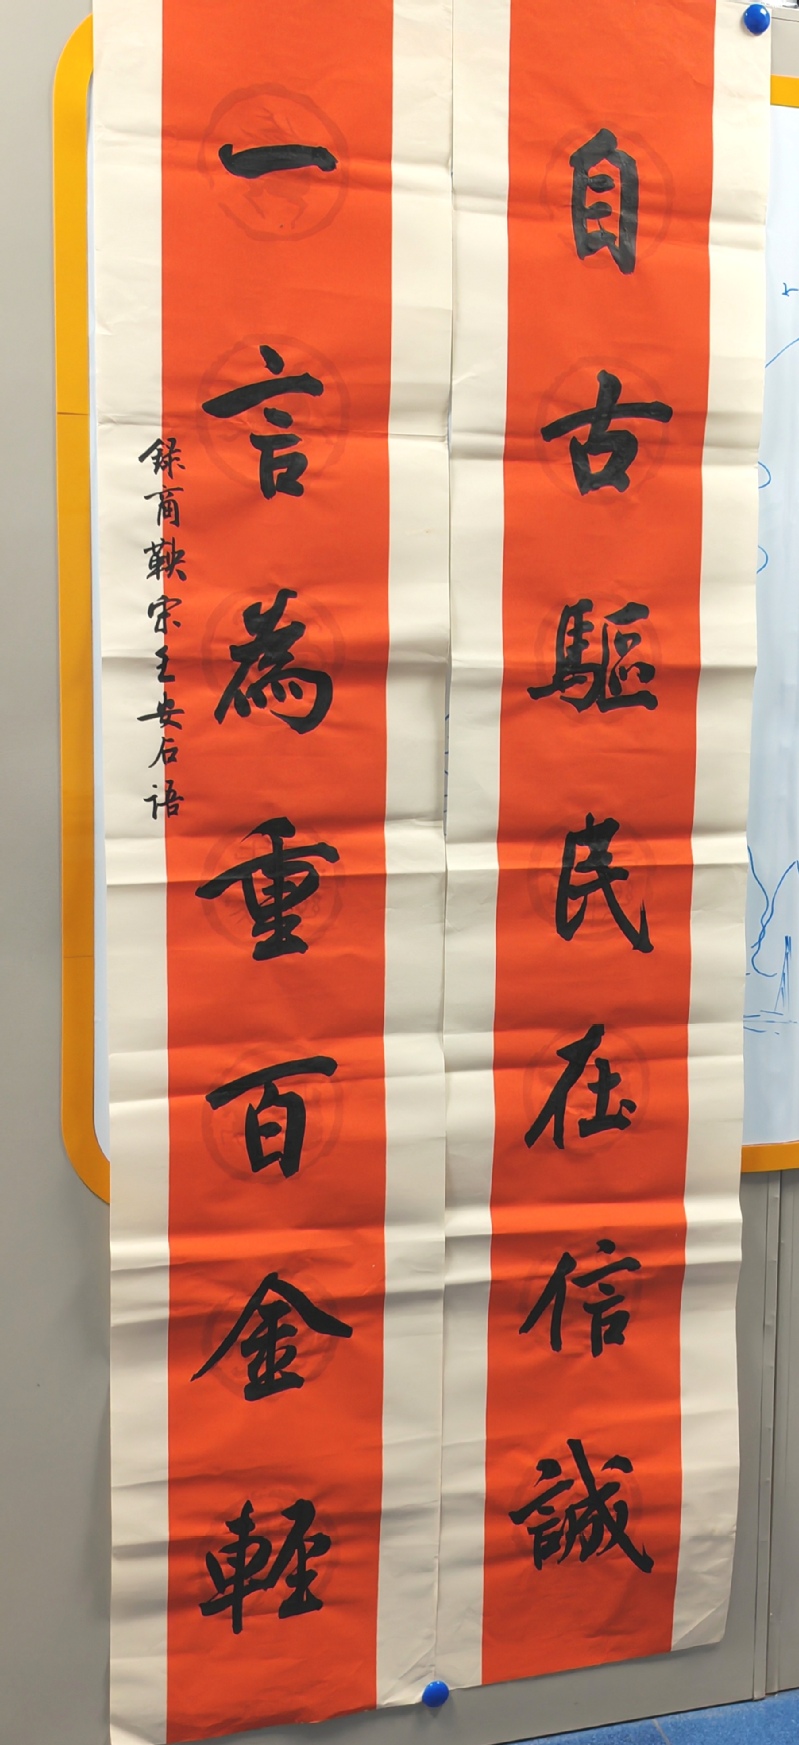 自古驅民在信誠
一言為重百金輕
録商鞅宋王安石语